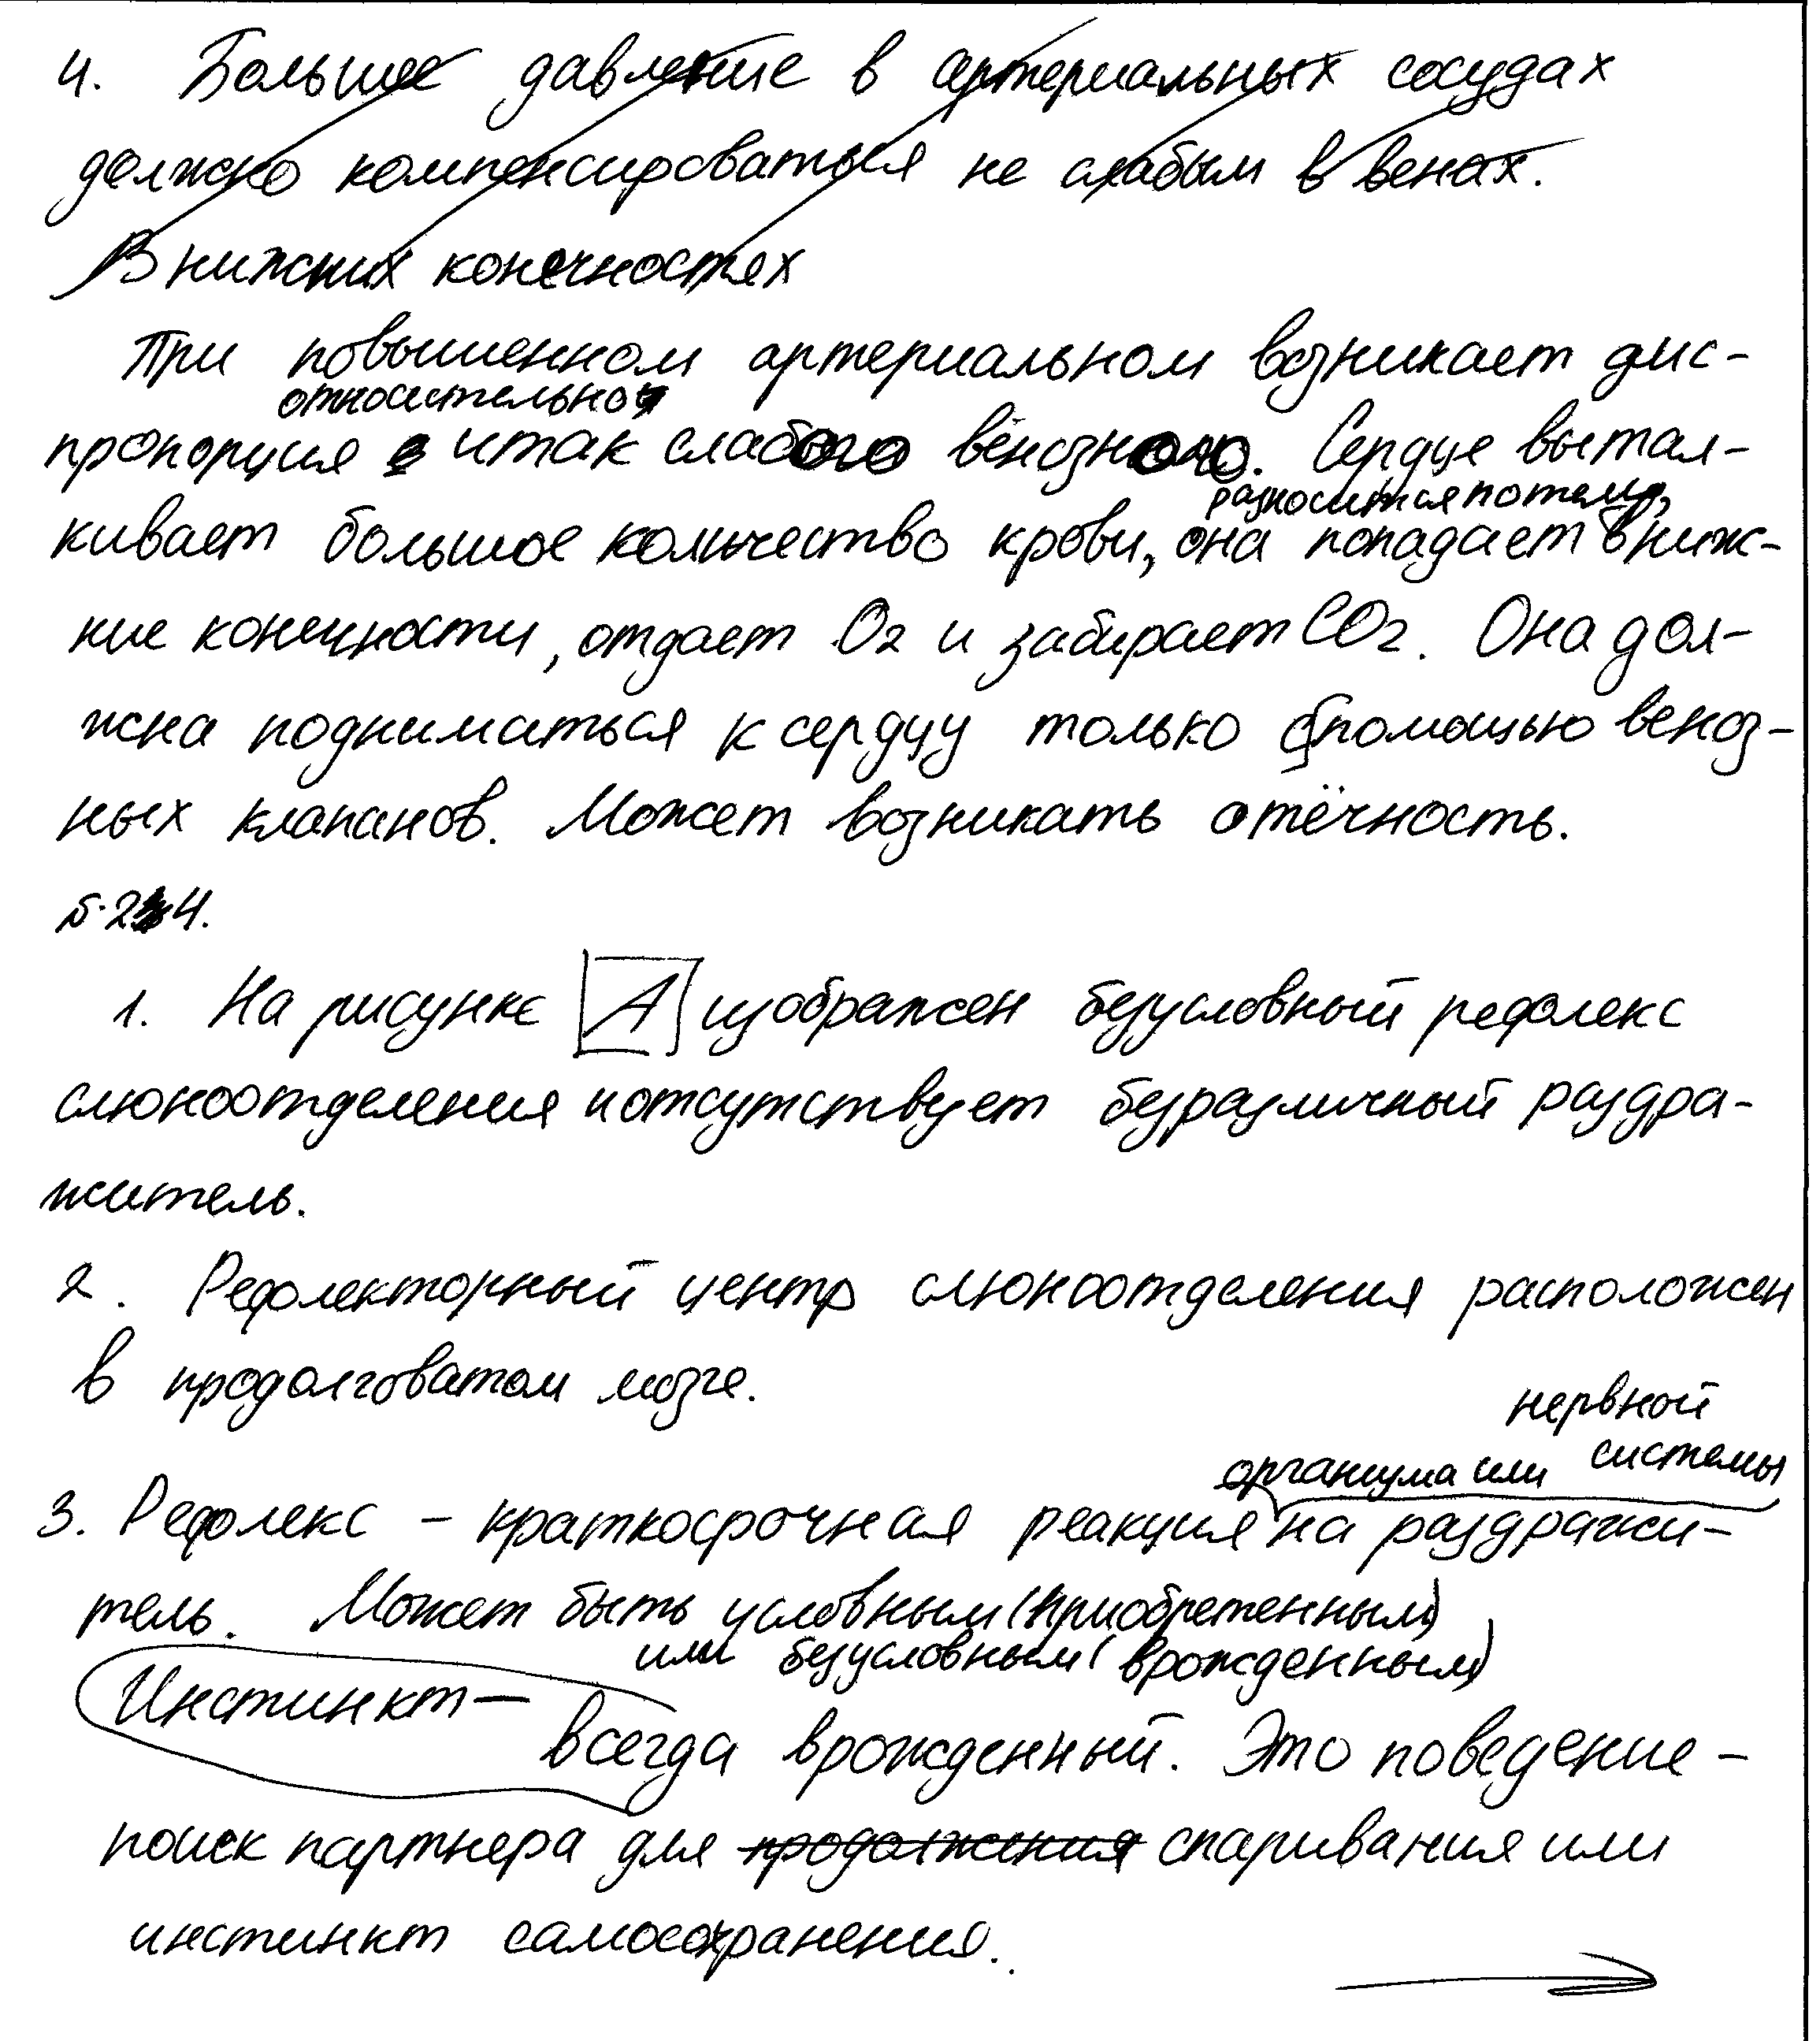 4. Большее давление в артериальных сосудах
должно компенсироваться не слабым в венах.
В нижних конечностях
При повышенном артериальном возникает дис-
относительно
пропорция итак слабого венозного. Сердце вытал-
разносится по телу,
кивает большое количество крови, она попадает в ниж-
ние конечности, отдает O2 и забирает CO2. Она дол-
жна подниматься к сердцу только с помощью веноз-
ных клапанов. Может возникать отёчность.
24.
1. На рисунке А изображен безусловный рефлекс
слюноотделения и отсутствует безразличный раздра-
житель.
2. Рефлекторный центр слюноотделения расположен
в продолговатом мозге.
нервной
организма или системы
3. Рефлекс – краткосрочная реакция на раздражи-
тель. Может быть условным (приобретенным)
или безусловным (врожденным)
Инстинкт –
всегда врожденный. Это поведение –
поиск партнера для продолжения спаривания или
инстинкт самосохранения.